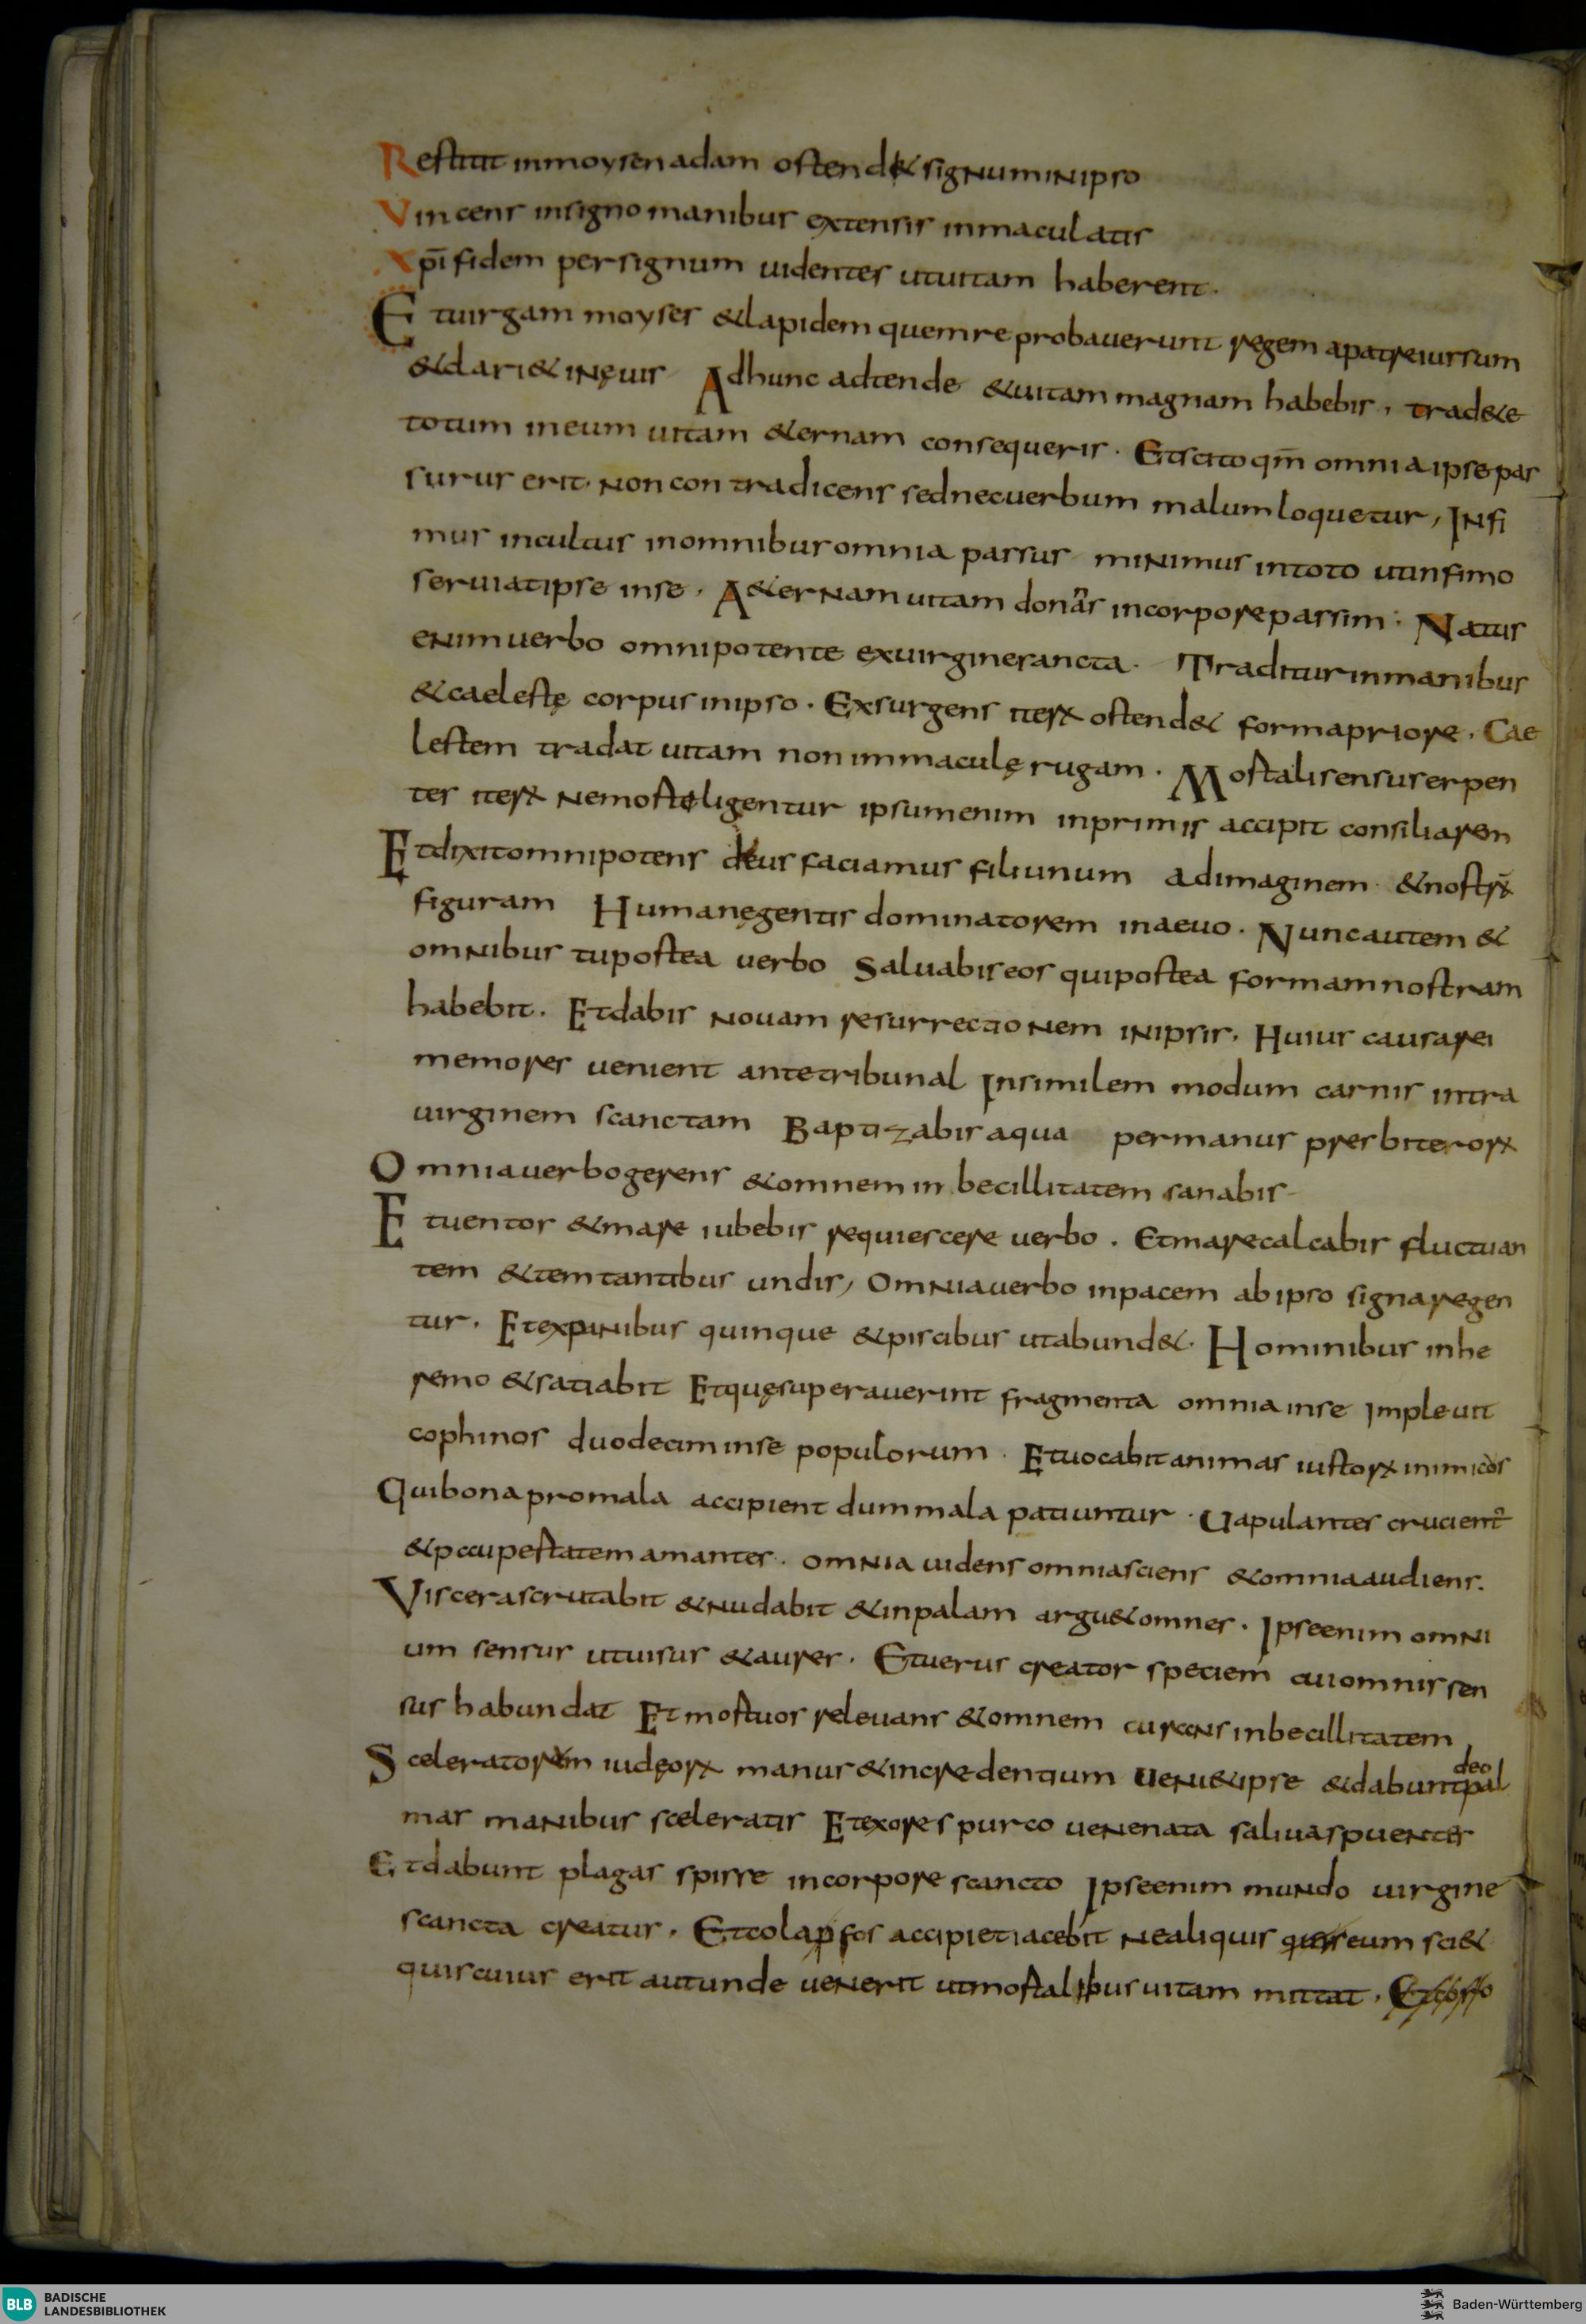 Restitit inmoysen adam ostend& signum inipso
Vincens insigno manibus extensis inmaculatis
Xp̄i fidem per signum uidentes utuitam haberent.
Et uirgam moyses &lapidem quem reprobauerunt regem apatre iussum
&dari& inęuis Adhunc adtende &uitam magnam habebis, trad&e
totum ineum uitam &ernam consequeris. Etscito qm̄ omnia ipse pas
surus erit. non contradicens sednecuerbum malum loquetur, Infi
mus incultus inomnibus omnia passus minimus intoto utinfimo
seruiat ipse inse. A&ernam uitam donans incorpore passim: Natus
enim uerbo omnipotente exuirgine sancta. Traditur inmanibus
&caelestę corpus inipso. Exsurgens iterꝝ ostend& forma priore. Cae
lestem tradat uitam non immaculę rugam. Mostalis ensus erpen
ter iterꝝ nemosteligentur ipsum enim inprimis accipit consiliarem
Etdixitomnipotens deus faciamus fili unum adimaginem &nostrꝝ
figuram Humanę gentis dominatorem inaeuo. Nuncautem &
omnibus tupostea uerbo Saluabis eos quipostea formam nostram
habebit. Etdabis nouam resurrectionem inipsis. Huius causa rei
memores uenient antetribunal Insimilem modum carnis intra
uirginem scanctam Baptizabis aqua permanus presbiterorꝝ
Omnia uerbo gerens &omnem inbecillitatem sanabis
Etuentos &mare iubebis requiescere uerbo. Etmare calcabis fluctuan
tem &temtantibus undis, Omnia uerbo inpacem ab ipso signa regen
tur. Etexpanibus quinque &piscibus utabund&. Hominibus inhe
remo &satiabit Etquę superauerint fragmenta omnia inse impleuit
cophinos duodecim inse populorum. Etuocabit animas iustorꝝ inimicos
Qui bona promala accipient dummala patiuntur. Uapulantes crucient᷒
&pccupestatem amantes. omnia uidens omnia sciens &omnia audiens.
Viscera scrutabit &nudabit &inpalam argu& omnes. Ipse enim omni
um sensus utuisus &aures. Etuerus creator speciem cuiomnis sen
sus habundat Etmostuos releuans &omnem curans inbecillitatem
Sceleratorem iudęorꝝ manus &incredentium ueni& ipse &dabunt deo pal
mas manibus sceleratis Etexore spurco uenenata saliua spuentes
Etdabunt plagas spisse incorpore scancto Ipse enim mundo uirgine
scancta creatur. Etcolapfos accipiet iacebit nealiquis eum sci&
quis cuius erit autunde uenerit utmostalibus uitam mittat.
BLB BADISCHE
LANDESBIBLIOTHEK
Baden-Württemberg